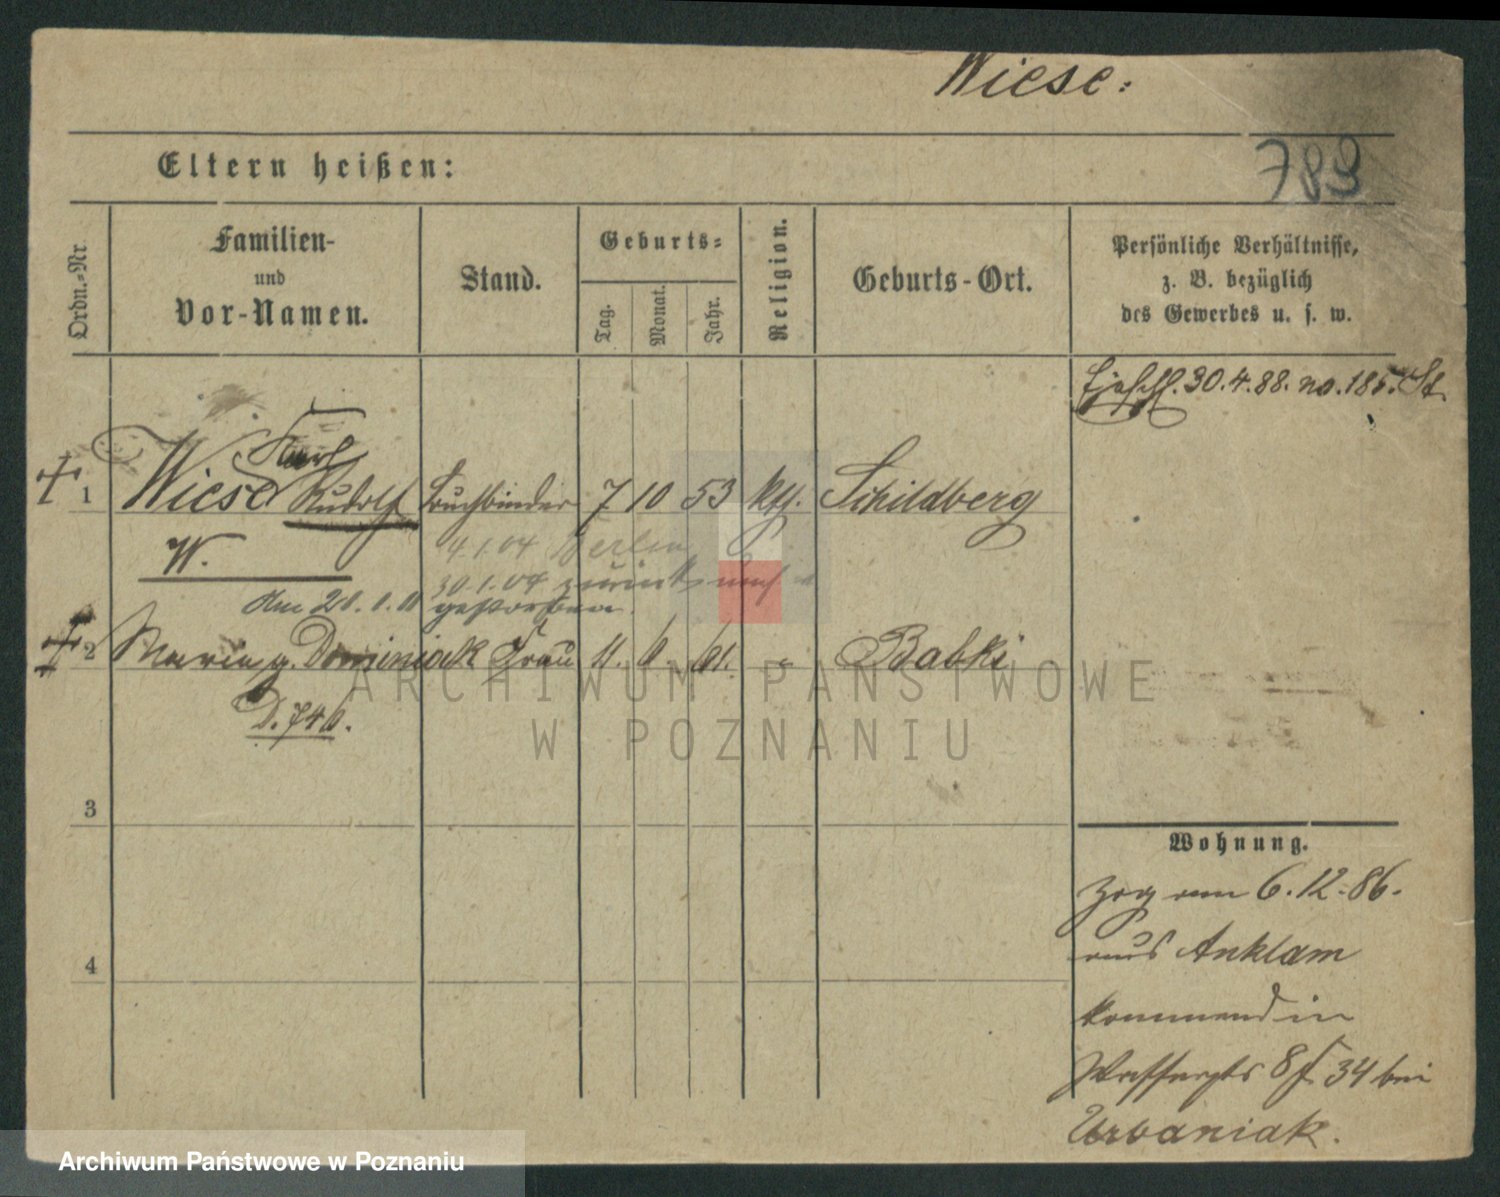 Wiese:
789
Eltern heißen:
Ordn.-Nr.
Familien-
und
Vor-Namen.
Stand.
Geburts-
Tag.
Monat.
Jahr.
Religion.
Geburts-Ort.
Persönliche Verhältnisse,
z. B. bezüglich
des Gewerbes u. s. w.
30.4.88. no. 185. St
Karl
1 Wiese Rudolf Buchbinder 7 10 53 kth. Schildberg
W.
4.1.04 Berlin
30.1.04 zurück
Am gestorben.
2 Maria g. Dominiak Frau 11. 6 61. " Babki
D. 746.
3
4
Wohnung.
Zog am 6.12.86.
aus Anklam
kommend in
8 34 bei
Urbaniak.
ARCHIWUM PAŃSTWOWE
W POZNANIU
Archiwum Państwowe w Poznaniu